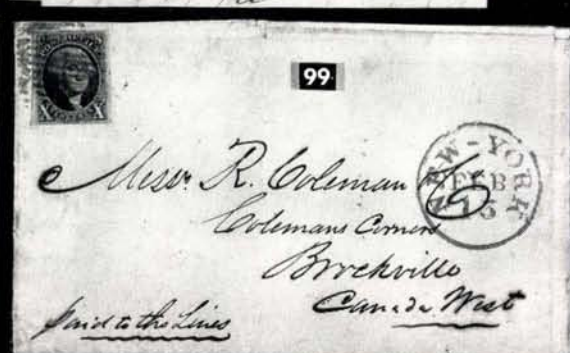 POST OFFICE
X X
99
NEW-YORK
FEB
15
Messr R. Coleman
Colemans Corners
Brockville
Canada West
paid to the Lines